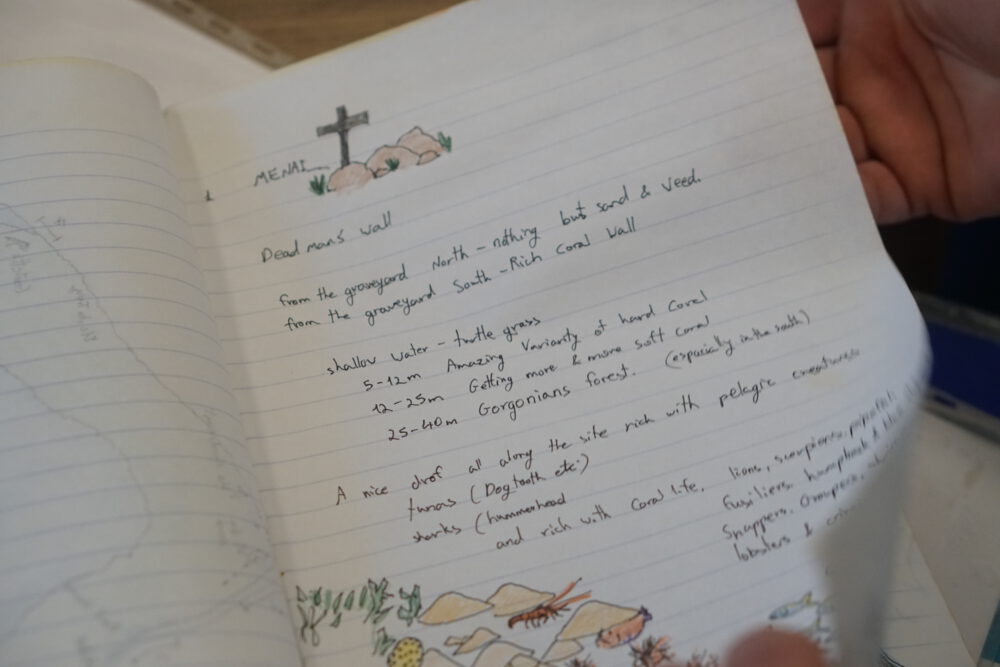 MENAI
1
Dead man's wall
from the graveyard North - nothing but sand & veed.
from the graveyard South - Rich coral wall
shallow water - turtle grass
5-12m Amazing Variarity of hard coral
12-25m Getting more & more soft coral
25-40m Gorgonians forest. (espacially in the south)
A nice drof all along the site rich with pelagic
tunas (Dogtooth etc.)
sharks (hummerhead
and rich with coral life, lions, scorpions,
fusiliers, humphead &
Snappers, Groupers,
lobsters &